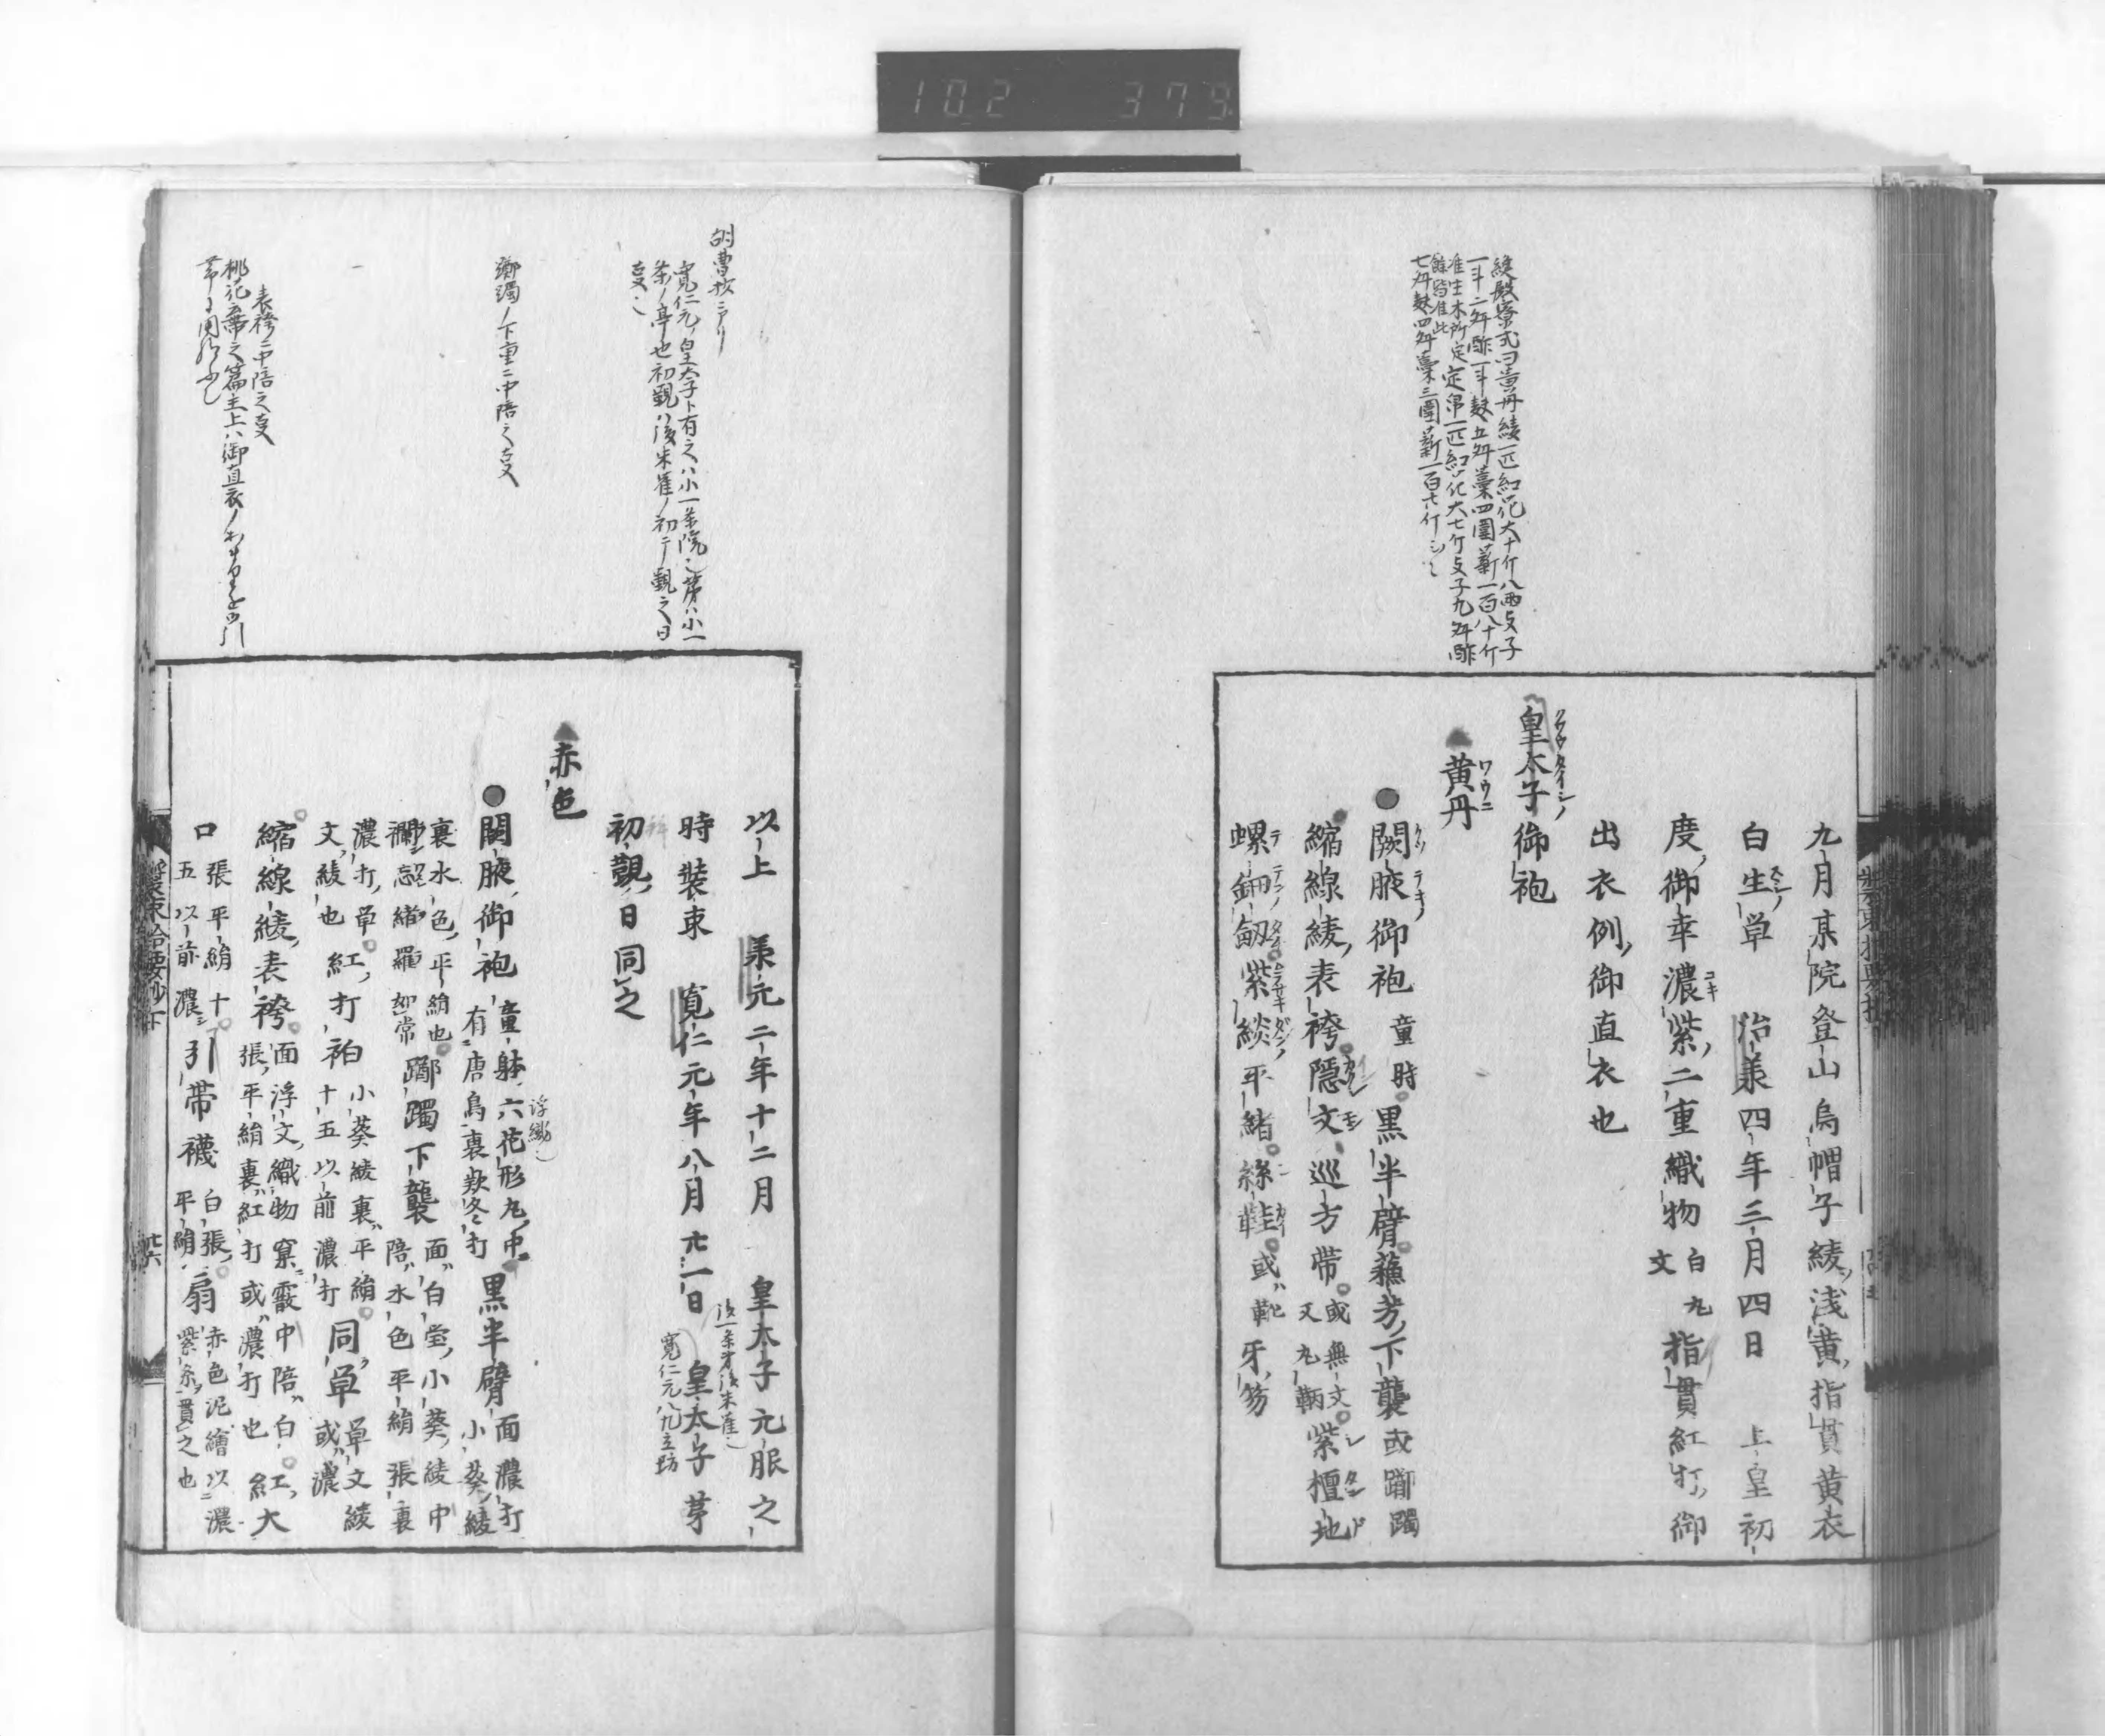 102 379
縫殿寮式曰黄丹綾一匹紅花大十斤八両支子
一斗二升酢一斗麩五升藁四圍薪一百八十斤
准生木所定 定帛一匹紅花大七斤支子九升酢
餘皆准此
七升麩四升藁三圍薪一百七斤
九月某院登山烏帽子綾浅黄指貫黄衣
白生単 治兼四年三月四日 上皇初
度御幸濃紫二重織物 白丸文 指貫紅打御
出衣例御直衣也
皇太子御袍
黄丹
闕腋御袍 童時 黒半臂蘇芳下襲 或躑躅
縮線綾表袴隠文巡方帯 或無文又丸鞆 紫檀地
螺鈿釼紫綟平緒絲鞋或靴牙笏
胡曹抄ニアリ
寛仁元ノ皇太子ト有之ハ小一条院 茅ハ小一
条ノ亭也初覲ハ後朱雀ノ初テ覲之日
躑躅ノ下重ニ中陪之
表袴ニ中陪之
桃花
以上 兼元二年十二月 皇太子元服之
時装束 寛仁元年八月廿一日 皇太子茅
初覲日同之
寛仁元八九立坊
赤色
闕腋御袍 童躰六花形丸中
有唐鳥裏欵冬打 黒半臂 面濃打
小葵綾
裏水色平絹也
襴忘緒羅如常 躑躅下襲 面白瑩小葵綾中
陪水色平絹張裏
濃打単 紅打衵 小葵綾裏平絹
文綾也 十五以前濃打 同単 単文綾
或濃
縮線綾表袴 面浮文織物窠霰中陪白
張平絹裏紅打或濃打也 紅大
口 張平絹十
五以前濃 引帯襪 白張
平絹 扇 赤色泥繪以濃
紫糸貫之也
装束拾要抄下 廿六